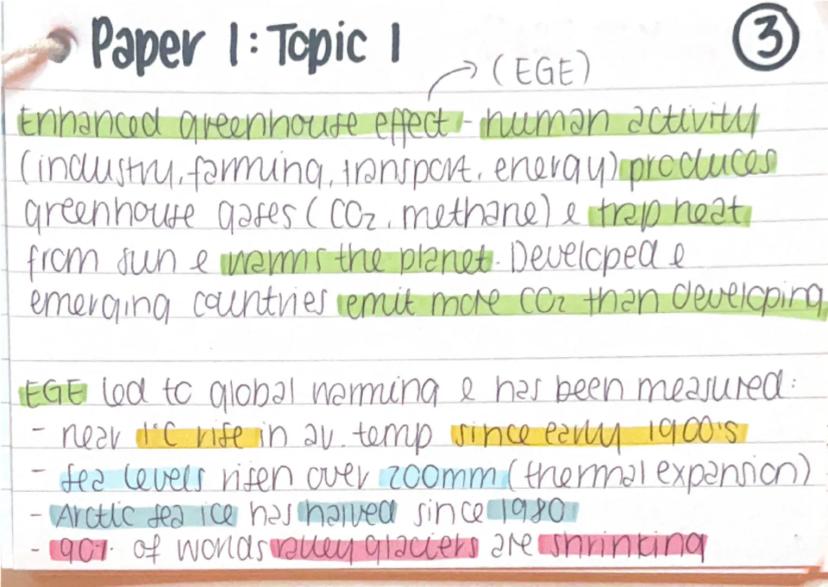 Paper 1: Topic 1
3
(EGE)
Enhanced greenhouse effect - human activity
(industry, farming, transport, energy) produces
greenhouse gases (CO₂, methane) & trap heat
from sun & warms the planet. Developed &
emerging countries emit more CO₂ than developing
EGE led to global warming & has been measured:
- near 1°C rise in av. temp since early 1900's
- sea levels risen over 200mm (thermal expansion)
- Arctic sea ice has halved since 1980
- 90% of worlds valley glaciers are shrinking